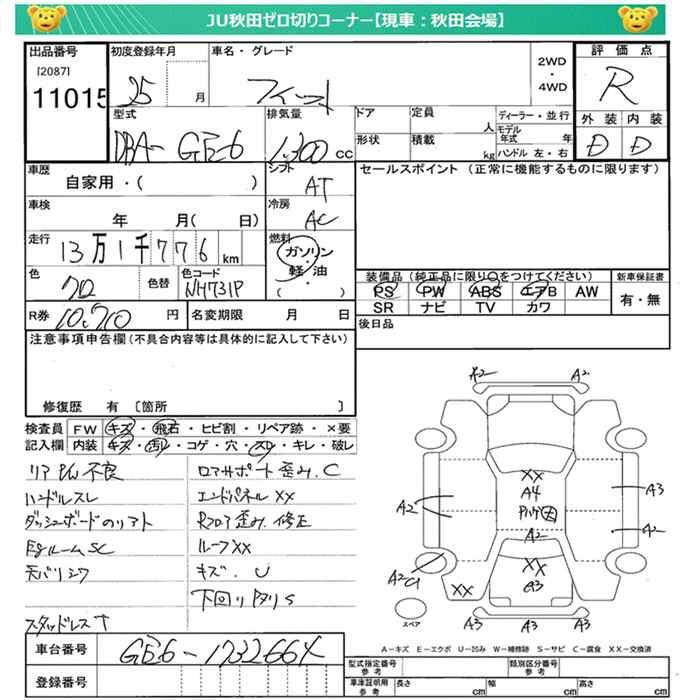 JU秋田ゼロ切りコーナー【現車：秋田会場】
出品番号 初度登録年月 車名・グレード 評価点
[2087]
11015 25 月 フィット 2WD・4WD R
型式 排気量 ドア 定員 人 ディーラー・並行 外装 内装
DBA- GE6 1,300 cc 形状 積載 kg モデル年式 年 D D
ハンドル 左・右
車歴 シフト セールスポイント（正常に機能するものに限ります）
自家用・( ) AT
車検 冷房
年 月( 日) AC
走行 燃料
13万1千776 km ガソリン・軽油
( )
色 色替 色コード 装備品（純正品に限り○をつけてください） 新車保証書
クロ NH731P PS PW ABS エアB AW 有・無
SR ナビ TV カワ
R券 10,710 円 名変期限 月 日 後日品
注意事項申告欄（不具合内容等は具体的に記入して下さい）
修復歴 有 〔箇所 〕
検査員 FW キズ・飛石・ヒビ割・リペア跡・×要
記入欄 内装 キズ・汚れ・コゲ・穴・スレ・キレ・破レ
リア P/W 不良 ロアサポート歪み.C
ハンドルスレ エンドパネルXX
ダッシュボードのリフト Rフロア歪み.修正
Egルーム SC ルーフXX
天バリシワ キズ.U
下回りサタリS
スタッドレス
A2 A2
XX
A4
A3
A2
A2
A2
XX
A3
A2C1
XX
スペア A3 A3 A3
A－キズ E－エクボ U－凹み W－補修跡 S－サビ C－腐食 XX－交換済
車台番号 GE6-1732664
登録番号
型式指定番号 参考 類別区分番号 参考
車庫証明用 参考 長さ cm 幅 cm 高さ cm